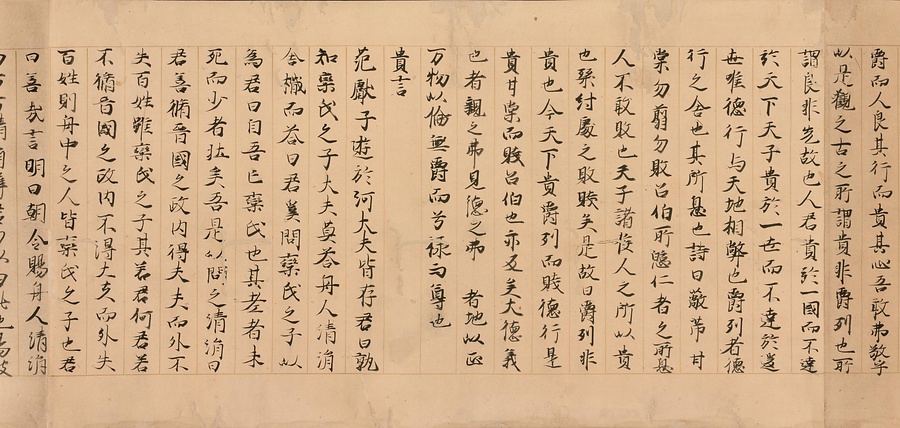 爵而人良其行而貴其心吾敢弗敬乎
以是觀之古之所謂貴非爵列也所
謂良非先故也人君貴於一國而不達
於天下天子貴於一世而不達於後
世唯德行与天地相弊也爵列者德
行之舍也其所息也詩曰蔽芾甘
棠勿翦勿敗召伯所憩仁者之所息
人不敢敗也天子諸侯人之所以貴
也桀紂處之則賤矣是故曰爵列非
貴也今天下貴爵列而賤德行是
貴甘棠而賤召伯也亦反矣夫德義
也者視之弗見聽之弗 者地以正
万物以倫無爵而兮祿而尊也
貴言
范獻子遊於河大夫皆存君曰孰
知欒氏之子大夫莫荅舟人清涓
舍檝而荅曰君奚問欒氏之子以
為君曰自吾亡欒氏也其老者未
死而少者壯矣吾是以問之清涓曰
君善脩晉國之政内得夫夫而外不
失百姓雖欒氏之子其若君何君若
不脩晉國之政内不得大夫而外失
百姓則舟中之人皆欒氏之子也君
曰善哉言明日朝令賜舟人清涓